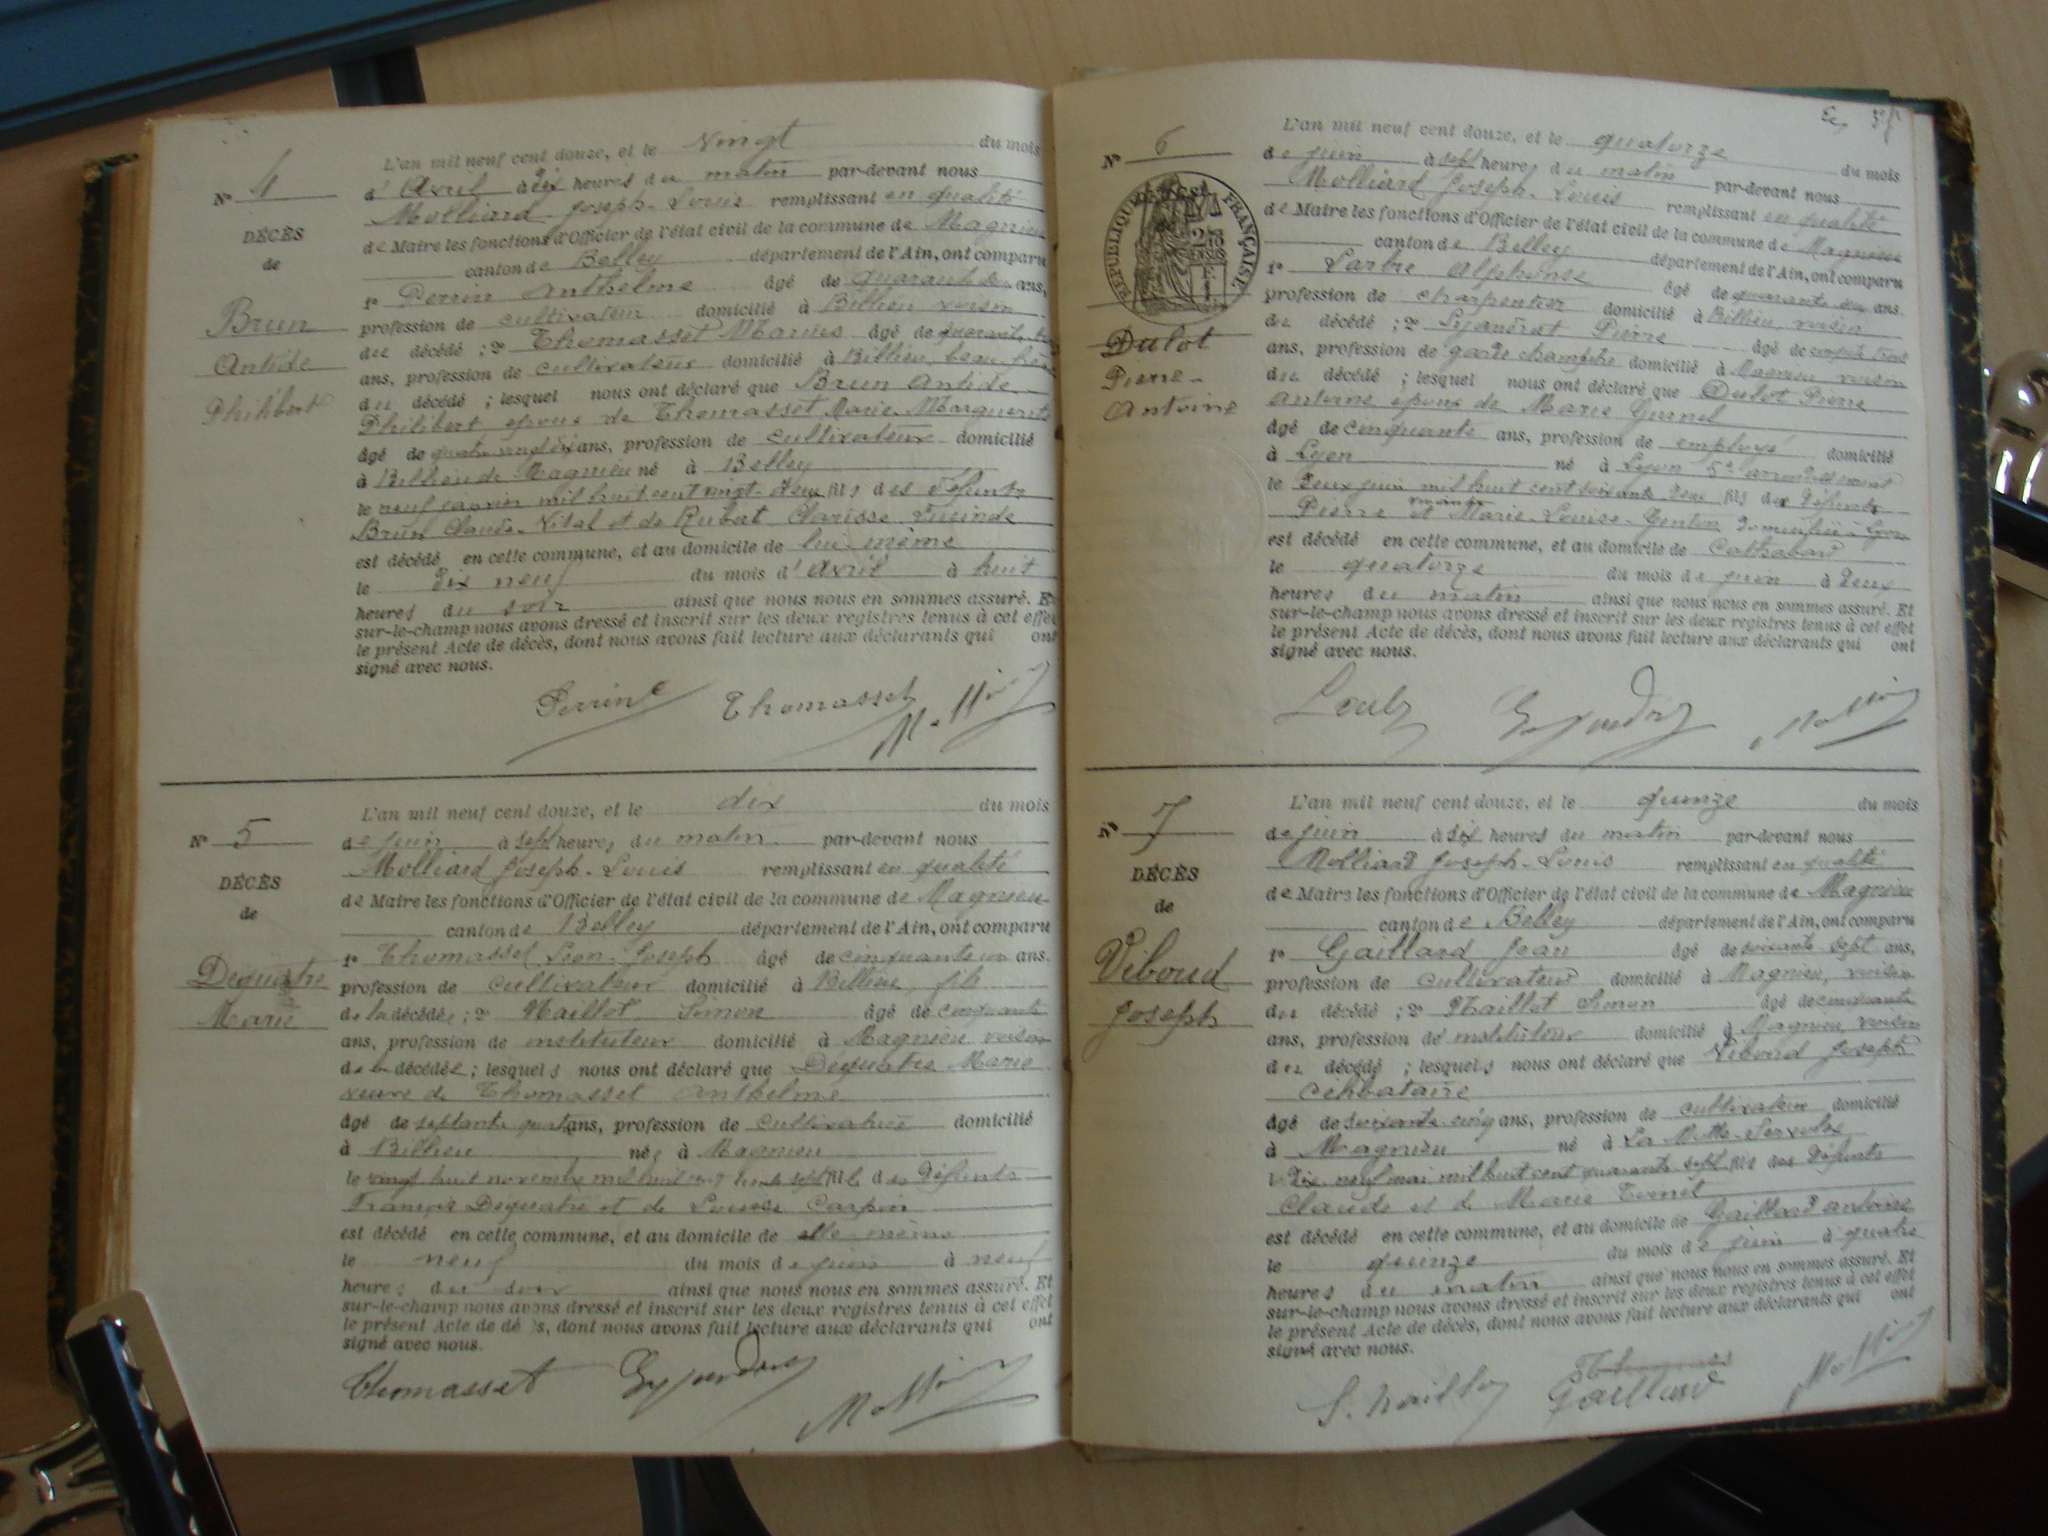 N° 4
DÉCÈS
de
Brun
Antide
Philibert
L'an mil neuf cent douze, et le vingt du mois
d'Avril à dix heures du matin par-devant nous
Molliard Joseph-Louis remplissant en qualité
de Maire les fonctions d'Officier de l'état civil de la commune de Magnieu
canton de Belley département de l'Ain, ont comparu
1° Perrin Anthelme âgé de quarante ans,
profession de cultivateur domicilié à Billieu voisin
du décédé ; 2° Thomasset Marius âgé de
ans, profession de cultivateur domicilié à Billieu, beau frère
du décédé ; lesquel nous ont déclaré que Brun Antide
Philibert époux de Thomasset Marie Marguerite
âgé de quatre vingt dix ans, profession de cultivateur domicilié
à Billieu de Magnieu né à Belley
le neuf janvier mil huit cent vingt-deux fils des défunts
Brun Claude-Vital et de Rubat Clarisse Lucinde
est décédé en cette commune, et au domicile de lui-même
le dix neuf du mois d'Avril à huit
heures du soir ainsi que nous nous en sommes assuré. Et
sur-le-champ nous avons dressé et inscrit sur les deux registres tenus à cet effet
le présent Acte de décès, dont nous avons fait lecture aux déclarants qui ont
signé avec nous.
Perrin Thomasset
N° 5
DÉCÈS
de
Dequatre
Marie
L'an mil neuf cent douze, et le dix du mois
de juin à sept heures du matin par-devant nous
Molliard Joseph-Louis remplissant en qualité
de Maire les fonctions d'Officier de l'état civil de la commune de Magnieu
canton de Belley département de l'Ain, ont comparu
1° Thomasset Léon-Joseph âgé de cinquante un ans.
profession de cultivateur domicilié à Billieu, fils
de la décédée ; 2° Maillot Simon âgé de cinquante
ans, profession de instituteur domicilié à Magnieu voisin
de la décédée ; lesquels nous ont déclaré que Dequatre Marie
veuve de Thomasset Anthelme
âgé de septante quatre ans, profession de cultivatrice domicilié
à Billieu née à Magnieu
le vingt huit novembre mil huit cent trente sept fille des défunts
François Dequatre et de Louise Carpin
est décédé en cette commune, et au domicile de elle-même
le neuf du mois de juin à neuf
heures du soir ainsi que nous nous en sommes assuré. Et
sur-le-champ nous avons dressé et inscrit sur les deux registres tenus à cet effet
le présent Acte de dé s, dont nous avons fait lecture aux déclarants qui ont
signé avec nous.
Thomasset
N° 6
RÉPUBLIQUE FRANÇAISE
Dulot
Pierre
Antoine
L'an mil neuf cent douze, et le quatorze du mois
de juin à sept heures du matin par-devant nous
Molliard Joseph-Louis remplissant en qualité
de Maire les fonctions d'Officier de l'état civil de la commune de Magnieu
canton de Belley département de l'Ain, ont comparu
1° Alphonse âgé de quarante ans.
profession de charpentier domicilié à Billieu, voisin
du décédé ; 2° Pierre âgé de cinquante
ans, profession de garde champêtre domicilié à Magnieu voisin
du décédé ; lesquel nous ont déclaré que Dulot Pierre
Antoine époux de Marie
âgé de cinquante ans, profession de employé domicilié
à Lyon né à Lyon 5e arrondissement
le deux juin mil huit cent soixante deux fils de défunts
Pierre et vivante Marie-Louise domiciliée à Lyon
est décédé en cette commune, et au domicile de
le quatorze du mois de juin à deux
heures du matin ainsi que nous nous en sommes assuré. Et
sur-le-champ nous avons dressé et inscrit sur les deux registres tenus à cet effet
le présent Acte de décès, dont nous avons fait lecture aux déclarants qui ont
signé avec nous.
N° 7
DÉCÈS
de
Viboud
Joseph
L'an mil neuf cent douze, et le quinze du mois
de juin à six heures du matin par-devant nous
Molliard Joseph-Louis remplissant en qualité
de Maire les fonctions d'Officier de l'état civil de la commune de Magnieu
canton de Belley département de l'Ain, ont comparu
1° Gaillard Jean âgé de soixante sept ans,
profession de cultivateur domicilié à Magnieu, voisin
du décédé ; 2° Maillot Simon âgé de cinquante
ans, profession de instituteur domicilié à Magnieu, voisin
du décédé ; lesquels nous ont déclaré que Viboud Joseph
célibataire
âgé de soixante cinq ans, profession de cultivateur domicilié
à Magnieu né à La Motte-Servolex
le dix neuf mai mil huit cent quarante sept fils des défunts
Claude et de Marie
est décédé en cette commune, et au domicile de Gaillard Antoine
le quinze du mois de juin à quatre
heures du matin ainsi que nous nous en sommes assuré. Et
sur-le-champ nous avons dressé et inscrit sur les deux registres tenus à cet effet
le présent Acte de décès, dont nous avons fait lecture aux déclarants qui ont
signé avec nous.
Gaillard